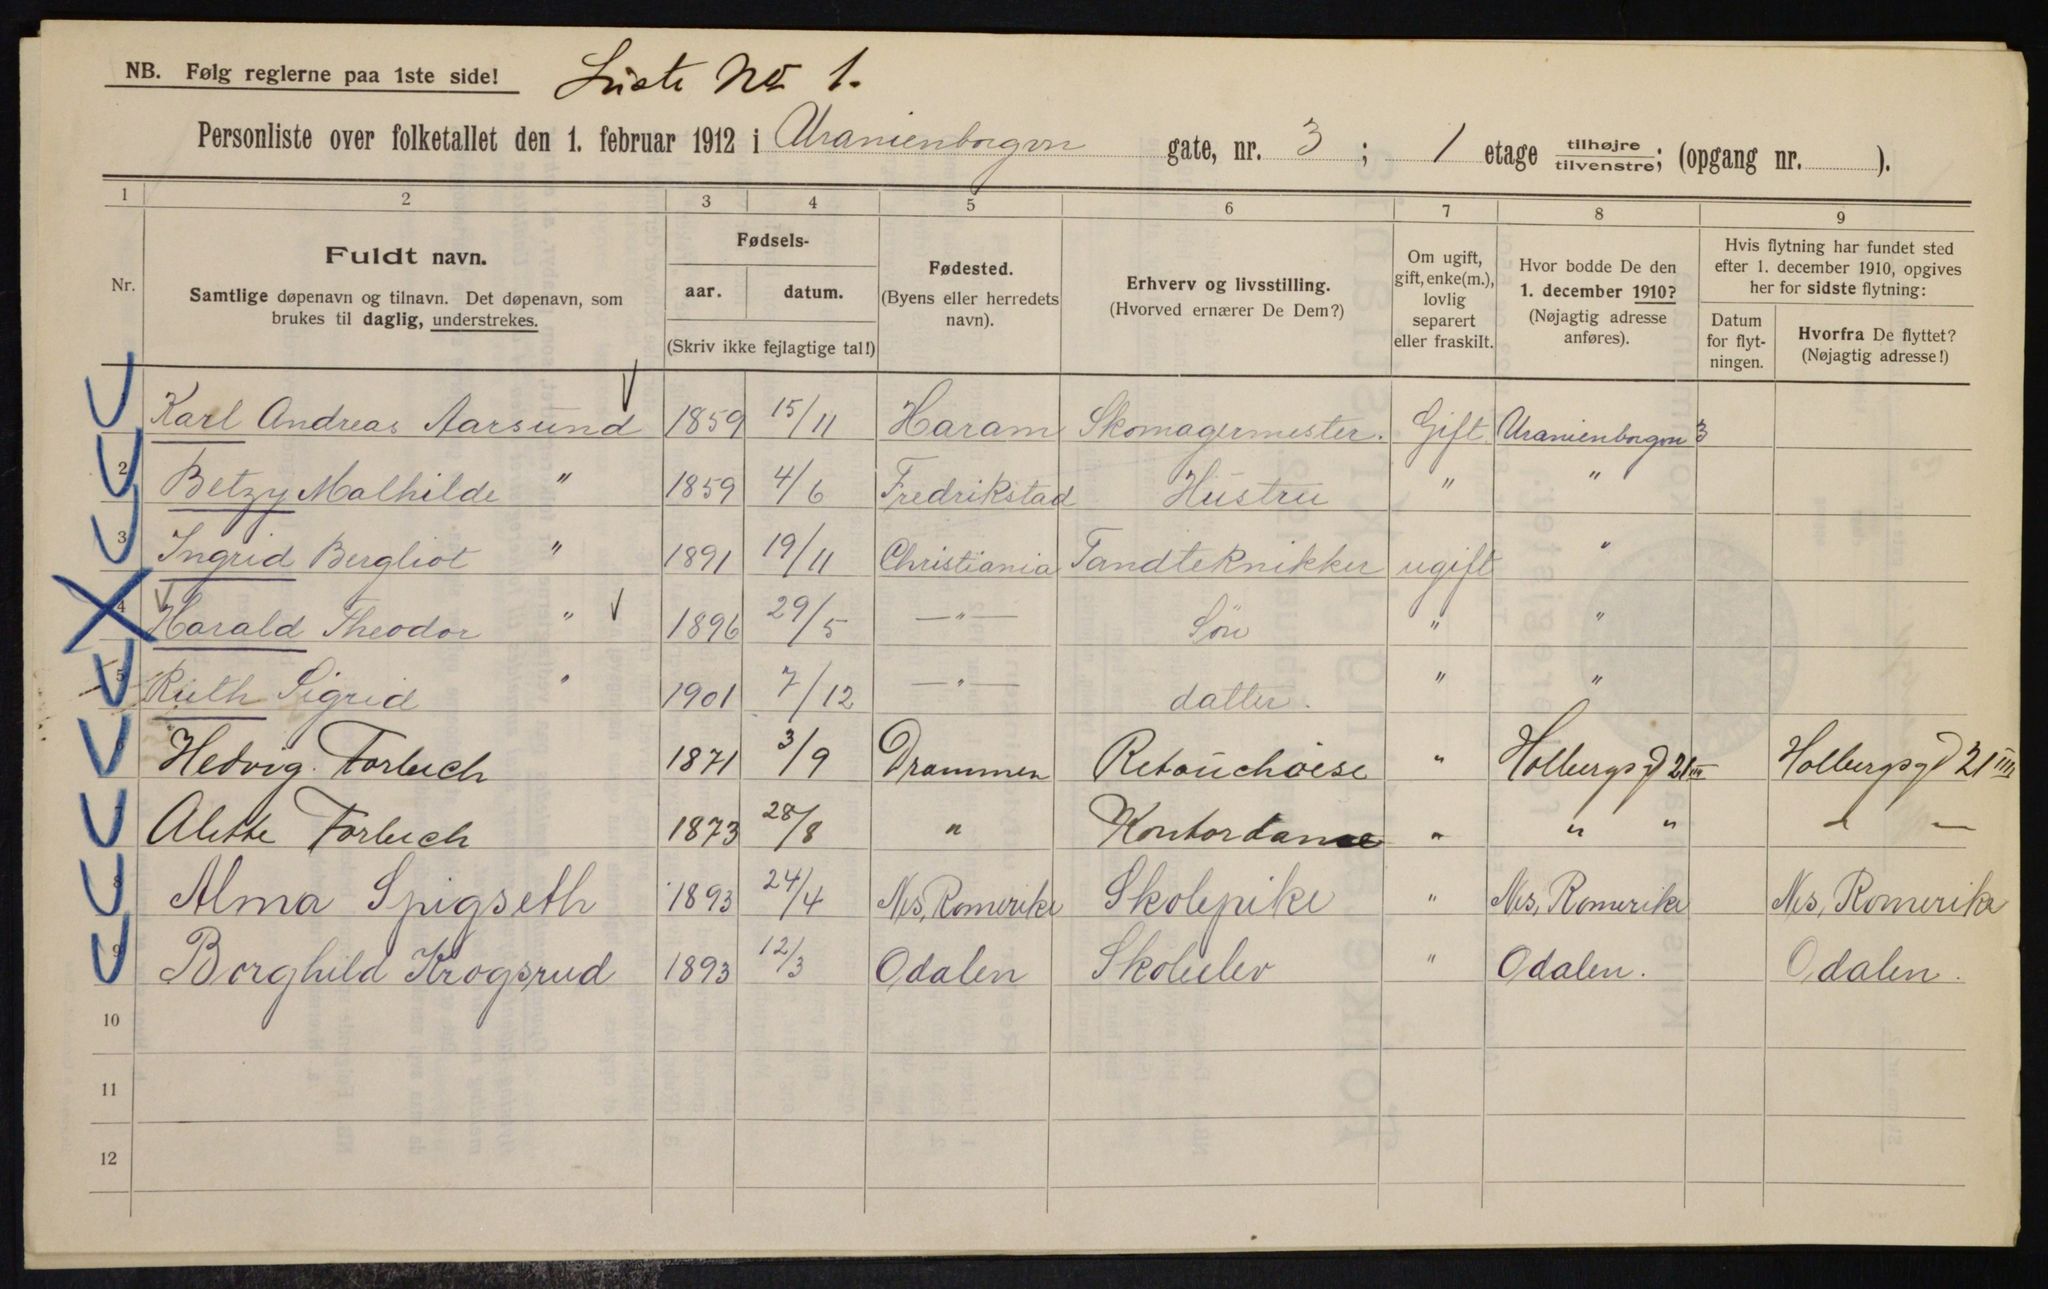 NB. Følg reglerne paa 1ste side! Liste No 1.
Personliste over folketallet den 1. februar 1912 i Uranienborgvn gate, nr. 3; 1 etage tilhøjre/tilvenstre; (opgang nr. ).
1 2 3 4 5 6 7 8 9
Nr.
Fuldt navn.
Samtlige døpenavn og tilnavn. Det døpenavn, som
brukes til daglig, understrekes.
Fødsels-
aar. datum.
(Skriv ikke fejlagtige tal!)
Fødested.
(Byens eller herredets
navn).
Erhverv og livsstilling.
(Hvorved ernærer De Dem?)
Om ugift,
gift, enke(m.),
lovlig
separert
eller fraskilt.
Hvor bodde De den
1. december 1910?
(Nøjagtig adresse
anføres).
Hvis flytning har fundet sted
efter 1. december 1910, opgives
her for sidste flytning:
Datum
for flyt-
ningen.
Hvorfra De flyttet?
(Nøjagtig adresse!)
Karl Andreas Aarsund 1859 15/11 Haram Skomagermester. Gift Uranienborgvn 3
2 Betzy Mathilde " 1859 4/6 Fredrikstad Hustru " "
3 Ingrid Bergliot " 1891 19/11 Christiania Tandteknikker ugift "
4 Harald Theodor " 1896 29/5 — " — Søn " "
5 Ruth Sigrid " 1901 7/12 — " — datter. " "
6 Hedvig Forbech 1871 3/9 Drammen Retouchøise " Holbergsgd 21 III Holbergsgd 21 III
7 Alette Forbech 1873 28/8 " Kontordame " " " " —
8 Alma Spigseth 1893 24/4 Nes, Romerike Skolepike " Nes, Romerike Nes, Romerike
9 Borghild Krogsrud 1893 12/3 Odalen Skoleelev " Odalen. Odalen.
10
11
12